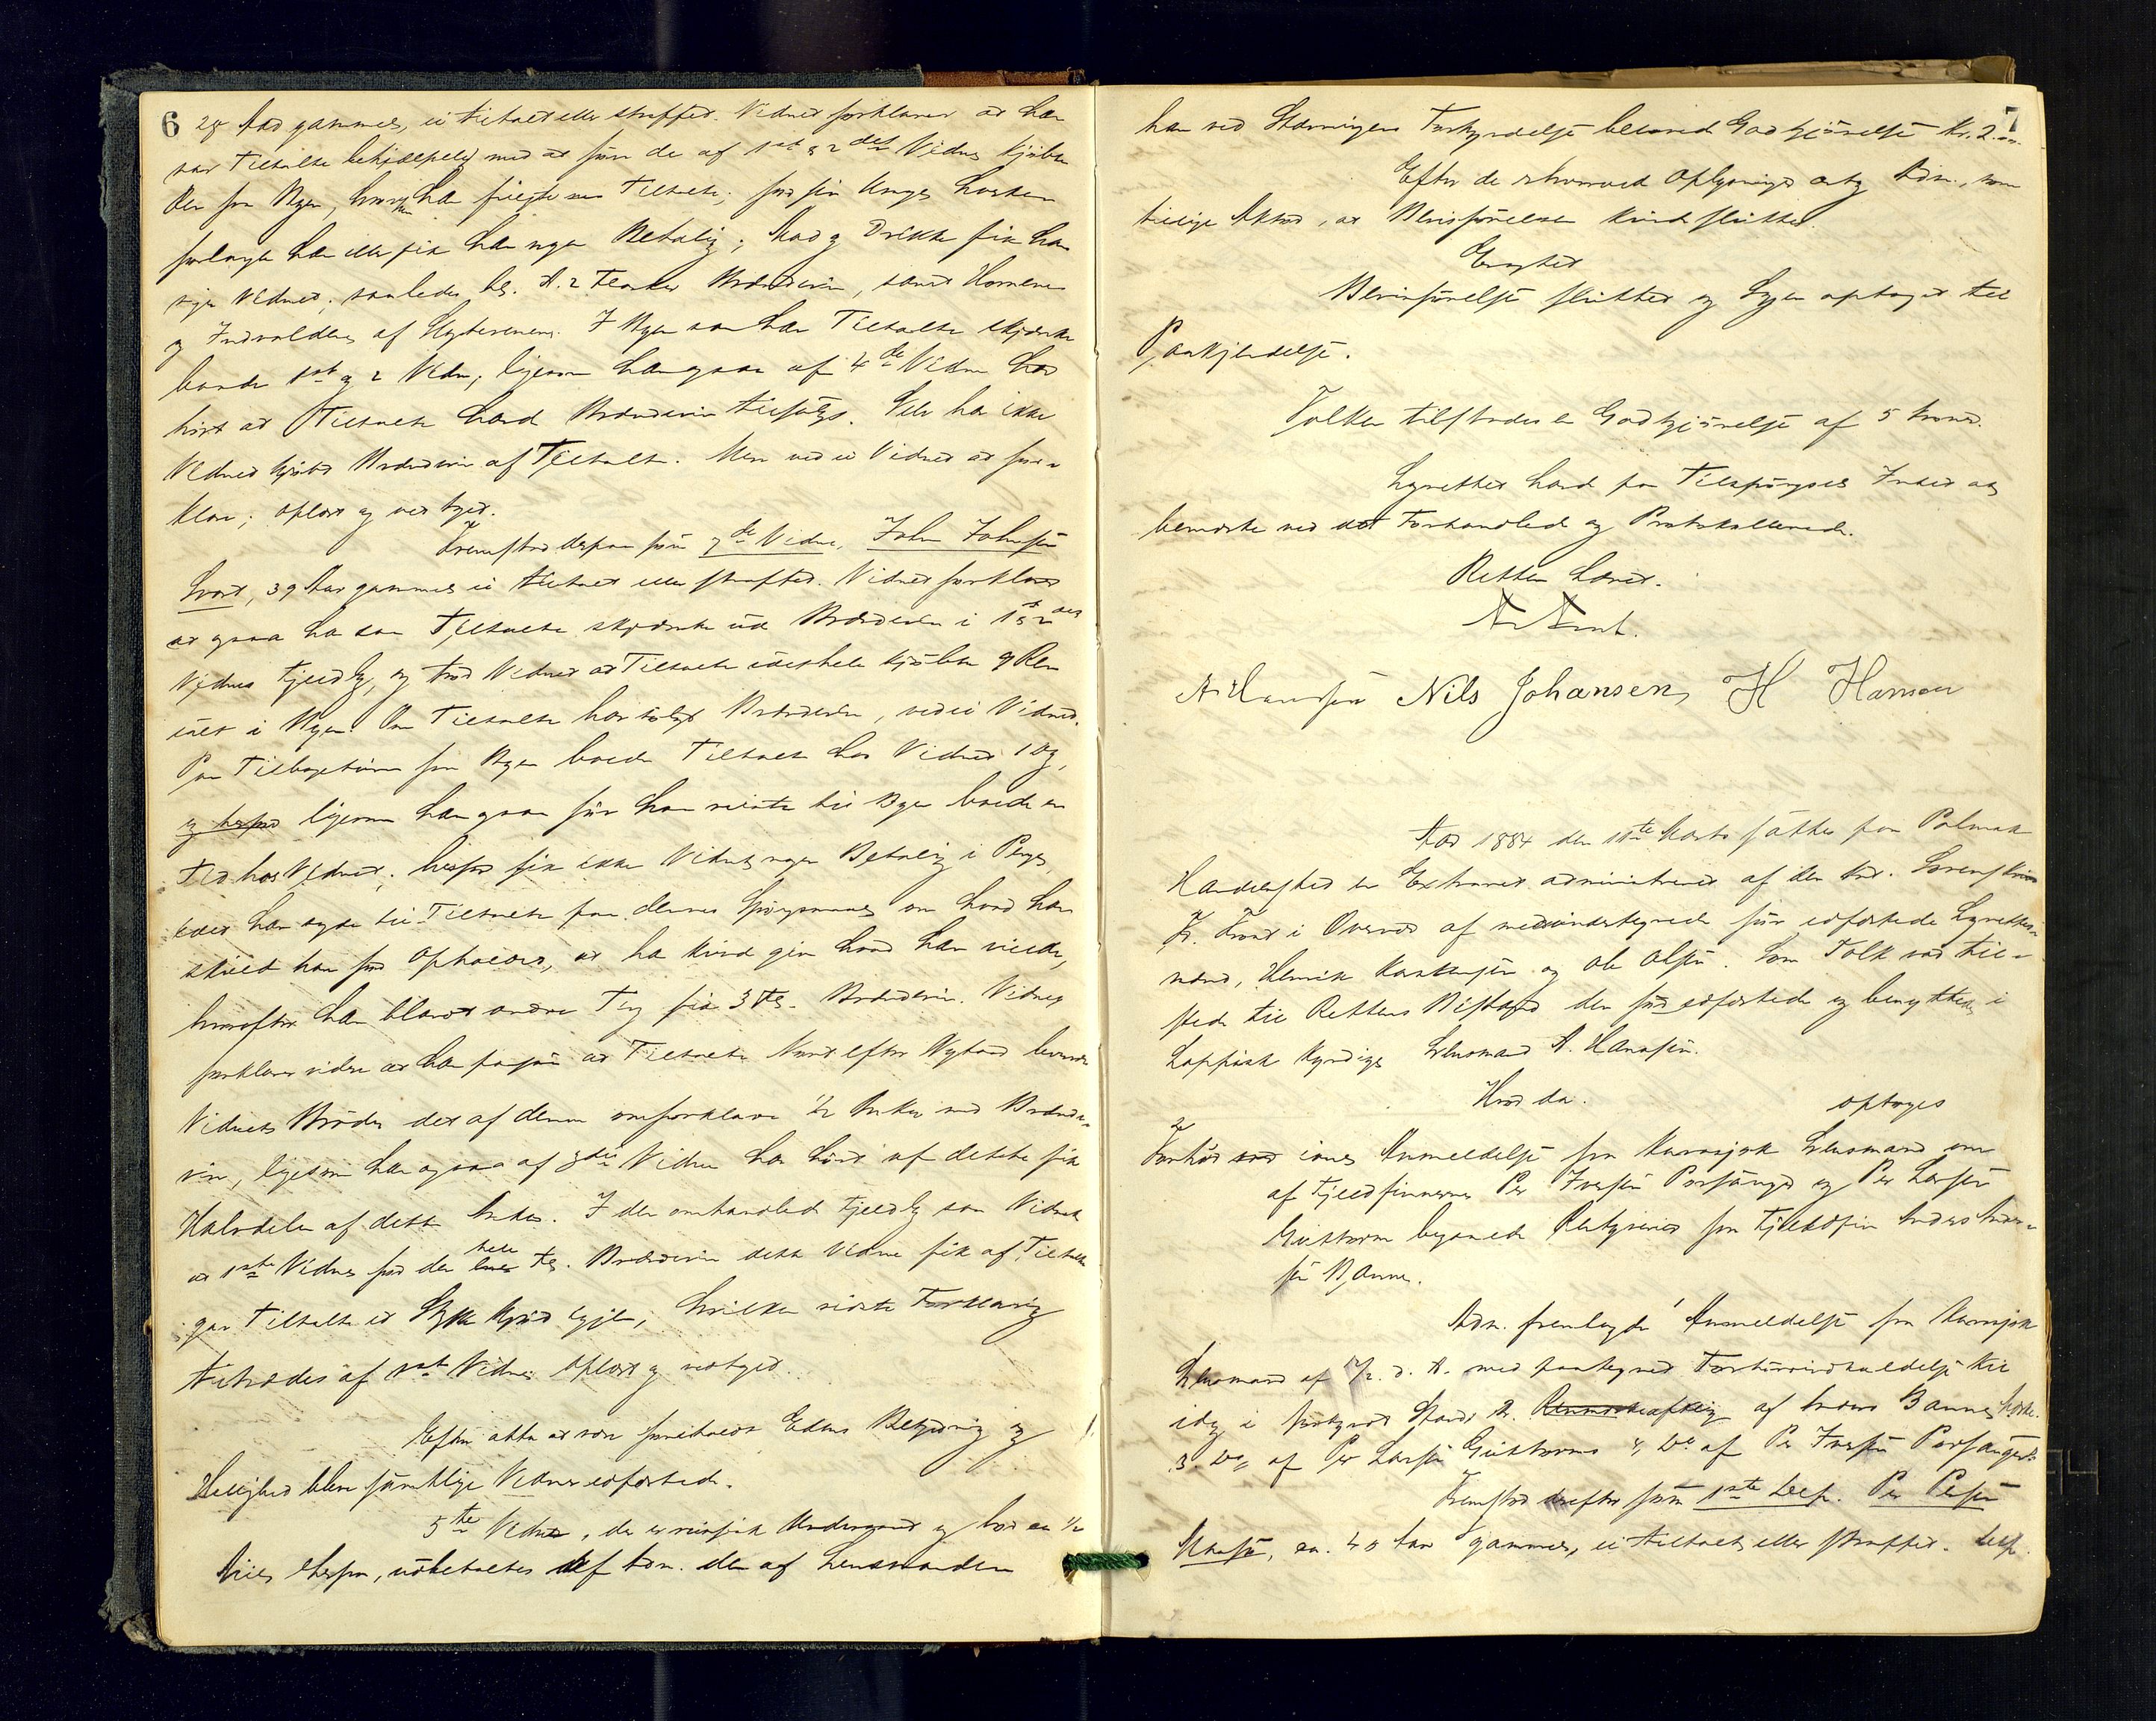 6
28 Aar gammel, ei tiltalt eller straffet. Vidnet forklarer at han
var Tiltalte behjælpelig med at føre de af 1ste & 2det Vidne kjøbte
Ren fra Byen, hvortil han fulgte med Tiltalte; for sin Umage hverken
forlangte han eller fik han nogen Betaling; Mad og Drikke fik han
siger Vidnet; saaledes bl. A. 2 Flasker Brændevin, samt Hornene
og Indvoldene af Slagterenene. I Byen saa han Tiltalte skjænke
baade 1ste og 2 Vidne, ligesom han ogsaa af 4de Vidne har
hørt at Tiltalte havde Brændevin tilsalgs. Selv har ikke
Vidnet kjøbt Brændevin af Tiltalte. Mere ved ei Vidnet at for-
klare; oplæst og vedtaget.
Fremstod derpaa som 7de Vidne, John Johnsen
Svart, 39 Aar gammel ei tiltalt eller straffet. Vidnet forklarer
at ogsaa han saa Tiltalte skjænke ud Brændevin i 1ste & 2det
Vidnes Fjeldlag, og tror Vidnet at Tiltalte idethele kjøbte 9 Ren
i Byen. Om Tiltalte har solgt Brændevin, ved ei Vidnet.
Paa Tilbageturen fra Byen boede Tiltalte hos Vidnet 1 Dag,
ligesom han ogsaa før han reiste til Byen boede en
Tid hos Vidnet; herfor fik ikke Vidnet nogen Betaling i Penge,
idet han sagde til Tiltalte paa dennes Spørgsmaal om hvad han
skuld ham for Opholdet, at han kunde give hvad han vilde,
hvorefter han blandt andre Ting fik 3 Fls. Brændevin. Vidnet
forklarer videre at han saa at Tiltalte Natt efter Nytaar leverede
Vidnets Broder det af denne omforklarede 1/2 Anker med Brænde-
vin, ligesom han ogsaa af 3die Vidne har hørt at dette fik
Halvdelen af dette Anker. I den omhandlede Fjeldlag saa Vidnet
at 1ste Vidne for den hele Fls. Brændevin dette Vidne fik af Tiltalte
gav Tiltalte et Stykke Kjød igjen, hvilken sidste Forklaring
tiltrædes af 1ste Vidne. Oplæst og vedtaget.
Efter atter at være foreholdt Edens Betydning og
Hellighed bleve samtlige Vidner edfæstede.
5te Vidne, der er reist og bor ca 1/2
Miil herfra, udbetaltes af Adm. den af Lensmanden
7
ham ved Stævningens Forkyndelse lovede Godtgjørelse Kr. 2.00.
Efter de skrevne Oplysninger Adm., som
tillige Aktor, at Bevisførelsen kunde sluttes.
Eragtet
Bevisførelsen sluttet og Sagen optaget til
Paakjendelse.
Tolken tilstodes en Godtgjørelse af 5 Kroner.
Lagrettet havde paa Tilspørgsel Intet at
bemærke ved det Forhandlede og Protokollerede.
Retten hævet.
A. Hansen Nils Johansen, H Hansen
Aar 1884 den 11te Marts sattes paa Polmak
Handelssted en Extraret administreret af den kst. Sorenskriver
Fr. i Overvær af medundertegnede før edfæstede Lagrettes-
mænd, Henrik Kasthensen og Ole Olsen. Som Tolk var til-
stede til Rettens Bistand den før edfæstede og benyttede i
Lappisk kyndige Lensmand A. Hansen.
Hvor da.
optoges
Forhør i Anmeldelse fra Karasjok Lensmand om
af Fjeldfinnerne Per Iversen Porsanger og Per Larsen
Guttorm begaaede Rentyveri fra Fjeldfin Anders Anders-
sen Banne.
Adm. fremlagde 1 Anmeldelse fra Karasjok
Lensmand af 7/2 d. A. med paategnet Forhørsindkaldelse til
idag i forkyndt Stand. 2. af Anders Bannes
3. Do. af Per Larsen Guttorms 4. Do. af Per Iversen Porsangers
Fremstod derefter som 1ste Dep. Per Persen
ca. 40 Aar gammel, ei tiltalt eller straffet. Dep.